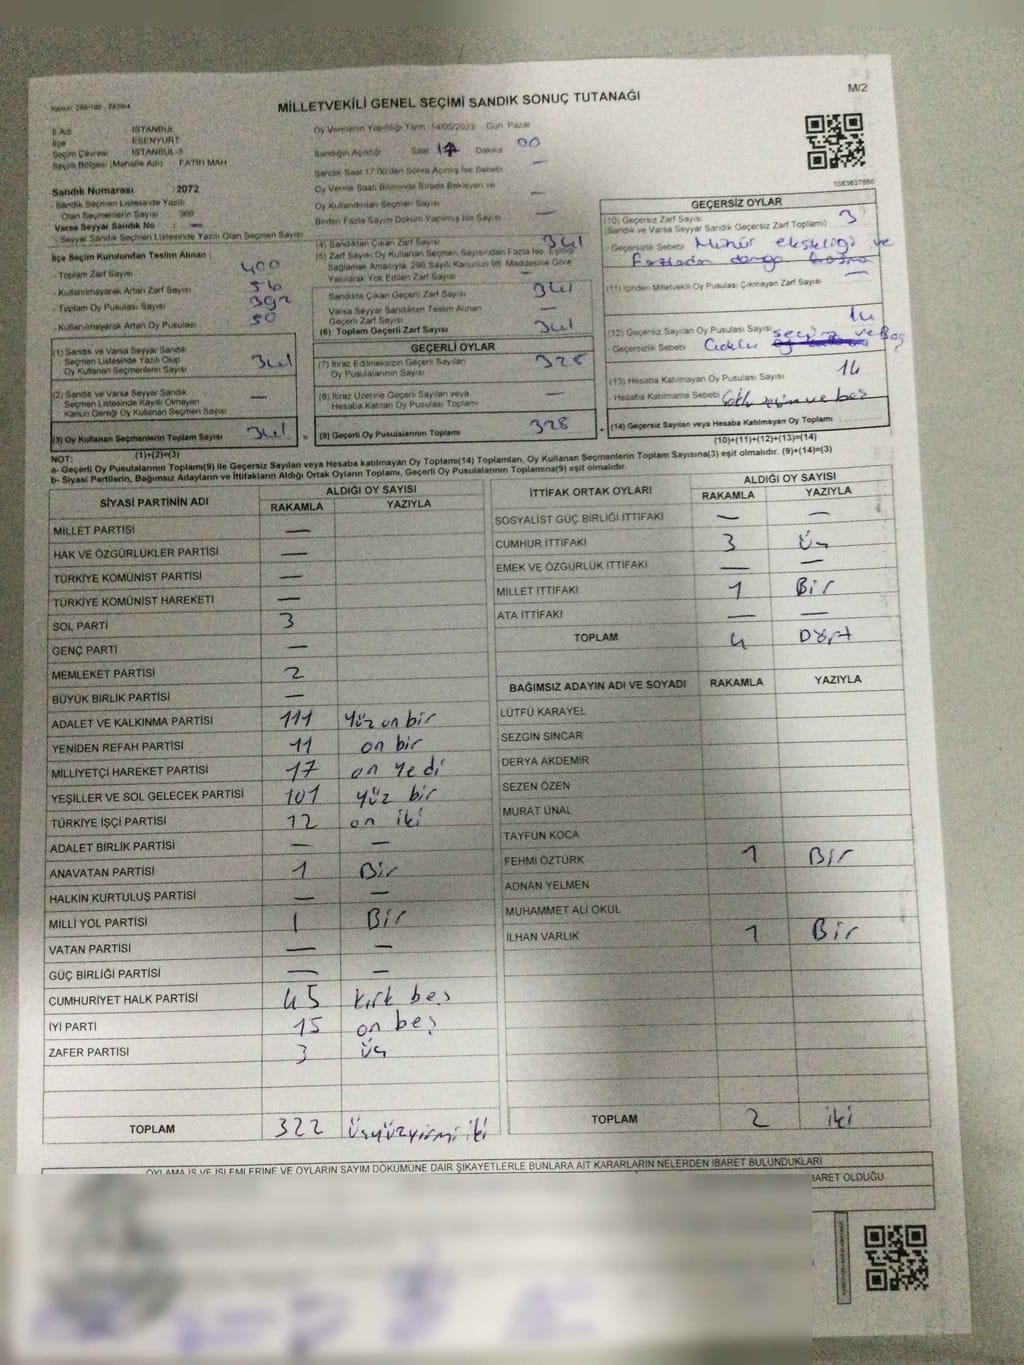 MİLLETVEKİLİ GENEL SEÇİMİ SANDIK SONUÇ TUTANAĞI
M/2
İl Adı İSTANBUL
İlçe ESENYURT
Seçim Çevresi İSTANBUL-3
Seçim Bölgesi (Mahalle Adı) FATİH MAH
Sandık Numarası : 2072
- Sandık Seçmen Listesinde Yazılı
Olan Seçmenlerin Sayısı 369
Varsa Seyyar Sandık No : —
- Seyyar Sandık Seçmen Listesinde Yazılı Olan Seçmen Sayısı
Oy Vermenin Yapıldığı Tarih 14/05/2023 Gün Pazar
Sandığın Açıldığı Saat 17 Dakika 00
Sandık Saat 17:00'den Sonra Açılmış İse Sebebi —
Oy Verme Saati Bitiminde Sırada Bekleyen ve
Oy Kullandırılan Seçmen Sayısı —
Birden Fazla Sayım Döküm Yapılmış İse Sayısı —
1083637880
İlçe Seçim Kurulundan Teslim Alınan :
- Toplam Zarf Sayısı 400
- Kullanılmayarak Artan Zarf Sayısı
- Toplam Oy Pusulası Sayısı
- Kullanılmayarak Artan Oy Pusulası 50
(1) Sandık ve Varsa Seyyar Sandık
Seçmen Listesinde Yazılı Olup
Oy Kullanan Seçmenlerin Sayısı 341
(2) Sandık ve Varsa Seyyar Sandık
Seçmen Listesinde Kayıtlı Olmayan
Kanun Gereği Oy Kullanan Seçmen Sayısı —
(3) Oy Kullanan Seçmenlerin Toplam Sayısı 341
(1)+(2)=(3)
(4) Sandıktan Çıkan Zarf Sayısı 341
(5) Zarf Sayısı Oy Kullanan Seçmen Sayısından Fazla İse, Eşitliği
Sağlamak Amacıyla, 298 Sayılı Kanunun 98. Maddesine Göre
Yakılarak Yok Edilen Zarf Sayısı —
Sandıkta Çıkan Geçerli Zarf Sayısı 341
Varsa Seyyar Sandıktan Teslim Alınan
Geçerli Zarf Sayısı —
(6) Toplam Geçerli Zarf Sayısı 341
GEÇERLİ OYLAR
(7) İtiraz Edilmeksizin Geçerli Sayılan
Oy Pusulalarının Sayısı 328
(8) İtiraz Üzerine Geçerli Sayılan veya
Hesaba Katılan Oy Pusulası Toplamı —
(9) Geçerli Oy Pusulalarının Toplamı 328
GEÇERSİZ OYLAR
(10) Geçersiz Zarf Sayısı 3
(Sandık ve Varsa Seyyar Sandık Geçersiz Zarf Toplamı)
- Geçersizlik Sebebi Mühür eksikliği ve
fazladan damga
(11) İçinden Milletvekili Oy Pusulası Çıkmayan Zarf Sayısı —
(12) Geçersiz Sayılan Oy Pusulası Sayısı 14
- Geçersizlik Sebebi seçim ve Boş
(13) Hesaba Katılmayan Oy Pusulası Sayısı 14
Hesaba Katılmama Sebebi seçim ve boş
(14) Geçersiz Sayılan veya Hesaba Katılmayan Oy Toplamı
(10)+(11)+(12)+(13)=(14)
NOT:
a- Geçerli Oy Pusulalarının Toplamı(9) ile Geçersiz Sayılan veya Hesaba katılmayan Oy Toplamı(14) Toplamları, Oy Kullanan Seçmenlerin Toplam Sayısına(3) eşit olmalıdır. (9)+(14)=(3)
b- Siyasi Partilerin, Bağımsız Adayların ve İttifakların Aldığı Ortak Oyların Toplamı, Geçerli Oy Pusulalarının Toplamına(9) eşit olmalıdır.
SİYASİ PARTİNİN ADI ALDIĞI OY SAYISI
RAKAMLA YAZIYLA
MİLLET PARTİSİ —
HAK VE ÖZGÜRLÜKLER PARTİSİ —
TÜRKİYE KOMÜNİST PARTİSİ —
TÜRKİYE KOMÜNİST HAREKETİ —
SOL PARTİ 3
GENÇ PARTİ —
MEMLEKET PARTİSİ 2
BÜYÜK BİRLİK PARTİSİ —
ADALET VE KALKINMA PARTİSİ 111 Yüz on bir
YENİDEN REFAH PARTİSİ 11 on bir
MİLLİYETÇİ HAREKET PARTİSİ 17 on yedi
YEŞİLLER VE SOL GELECEK PARTİSİ 101 yüz bir
TÜRKİYE İŞÇİ PARTİSİ 12 on iki
ADALET BİRLİK PARTİSİ — —
ANAVATAN PARTİSİ 1 Bir
HALKIN KURTULUŞ PARTİSİ — —
MİLLİ YOL PARTİSİ 1 Bir
VATAN PARTİSİ — —
GÜÇ BİRLİĞİ PARTİSİ — —
CUMHURİYET HALK PARTİSİ 45 kırk beş
İYİ PARTİ 15 on beş
ZAFER PARTİSİ 3 üç
TOPLAM 322 üçyüzyirmi iki
İTTİFAK ORTAK OYLARI ALDIĞI OY SAYISI
RAKAMLA YAZIYLA
SOSYALİST GÜÇ BİRLİĞİ İTTİFAKI — —
CUMHUR İTTİFAKI 3 Üç
EMEK VE ÖZGÜRLÜK İTTİFAKI — —
MİLLET İTTİFAKI 1 Bir
ATA İTTİFAKI — —
TOPLAM 4 Dört
BAĞIMSIZ ADAYIN ADI VE SOYADI RAKAMLA YAZIYLA
LÜTFÜ KARAYEL
SEZGİN SİNCAR
DERYA AKDEMİR
SEZEN ÖZEN
MURAT ÜNAL
TAYFUN KOCA
FEHMİ ÖZTÜRK 1 Bir
ADNAN YELMEN
MUHAMMET ALİ OKUL
İLHAN VARLIK 1 Bir
TOPLAM 2 iki
OYLAMA İŞ VE İŞLEMLERİNE VE OYLARIN SAYIM DÖKÜMÜNE DAİR ŞİKAYETLERLE BUNLARA AİT KARARLARIN NELERDEN İBARET BULUNDUKLARI
İBARET OLDUĞU